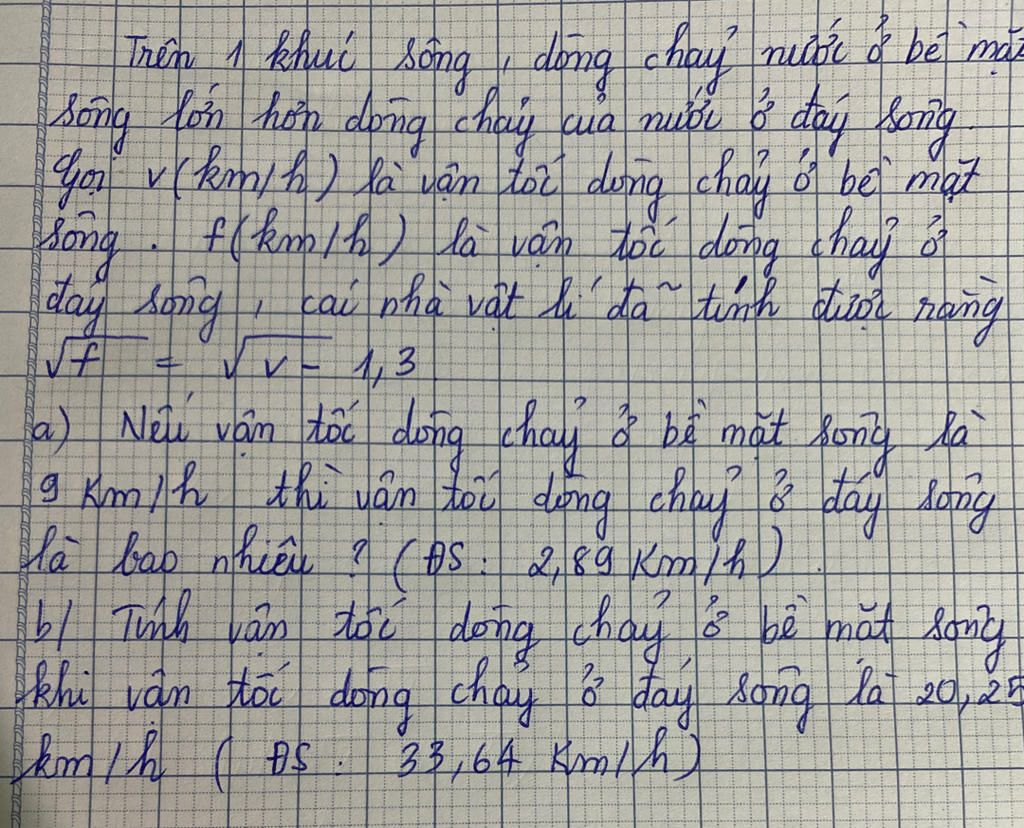 Trên 1 khúc sông, dòng chảy nước ở bề mặt
sông lớn hơn dòng chảy của nước ở đáy sông.
Gọi v(km/h) là vận tốc dòng chảy ở bề mặt
sông. f(km/h) là vận tốc dòng chảy ở
đáy sông, các nhà vật lí đã tính được rằng
√f = √v - 1,3
a) Nếu vận tốc dòng chảy ở bề mặt sông là
9 Km/h thì vận tốc dòng chảy ở đáy sông
là bao nhiêu? (ĐS: 2,89 Km/h).
b/ Tính vận tốc dòng chảy ở bề mặt sông
khi vận tốc dòng chảy ở đáy sông là 20,25
km/h (ĐS: 33,64 Km/h)